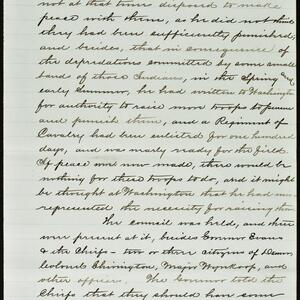 not at that time disposed to make
peace with them, as he did not think
they had been sufficiently punished;
and besides, that in consequence of
the depredations committed by some small
band of those Indians, in the Spring and
early Summer, he had written to Washington
for authority to raise more troops to pursue
and punish them, and a Regiment of
Cavalry had been enlisted for one hundred
days, and was nearly ready for the field.
If peace was now made, there would be
nothing for these troops to do, and it might
be thought at Washington that he had mis
represented the necessity for raising them.
The council was held, and there
were present at it, besides Governor Evans
& the Chiefs - two or three citizens of Denver,
Colonel Chivington, Major Wynkoop, and
other officers. The Governor told the
Chiefs that they should have some